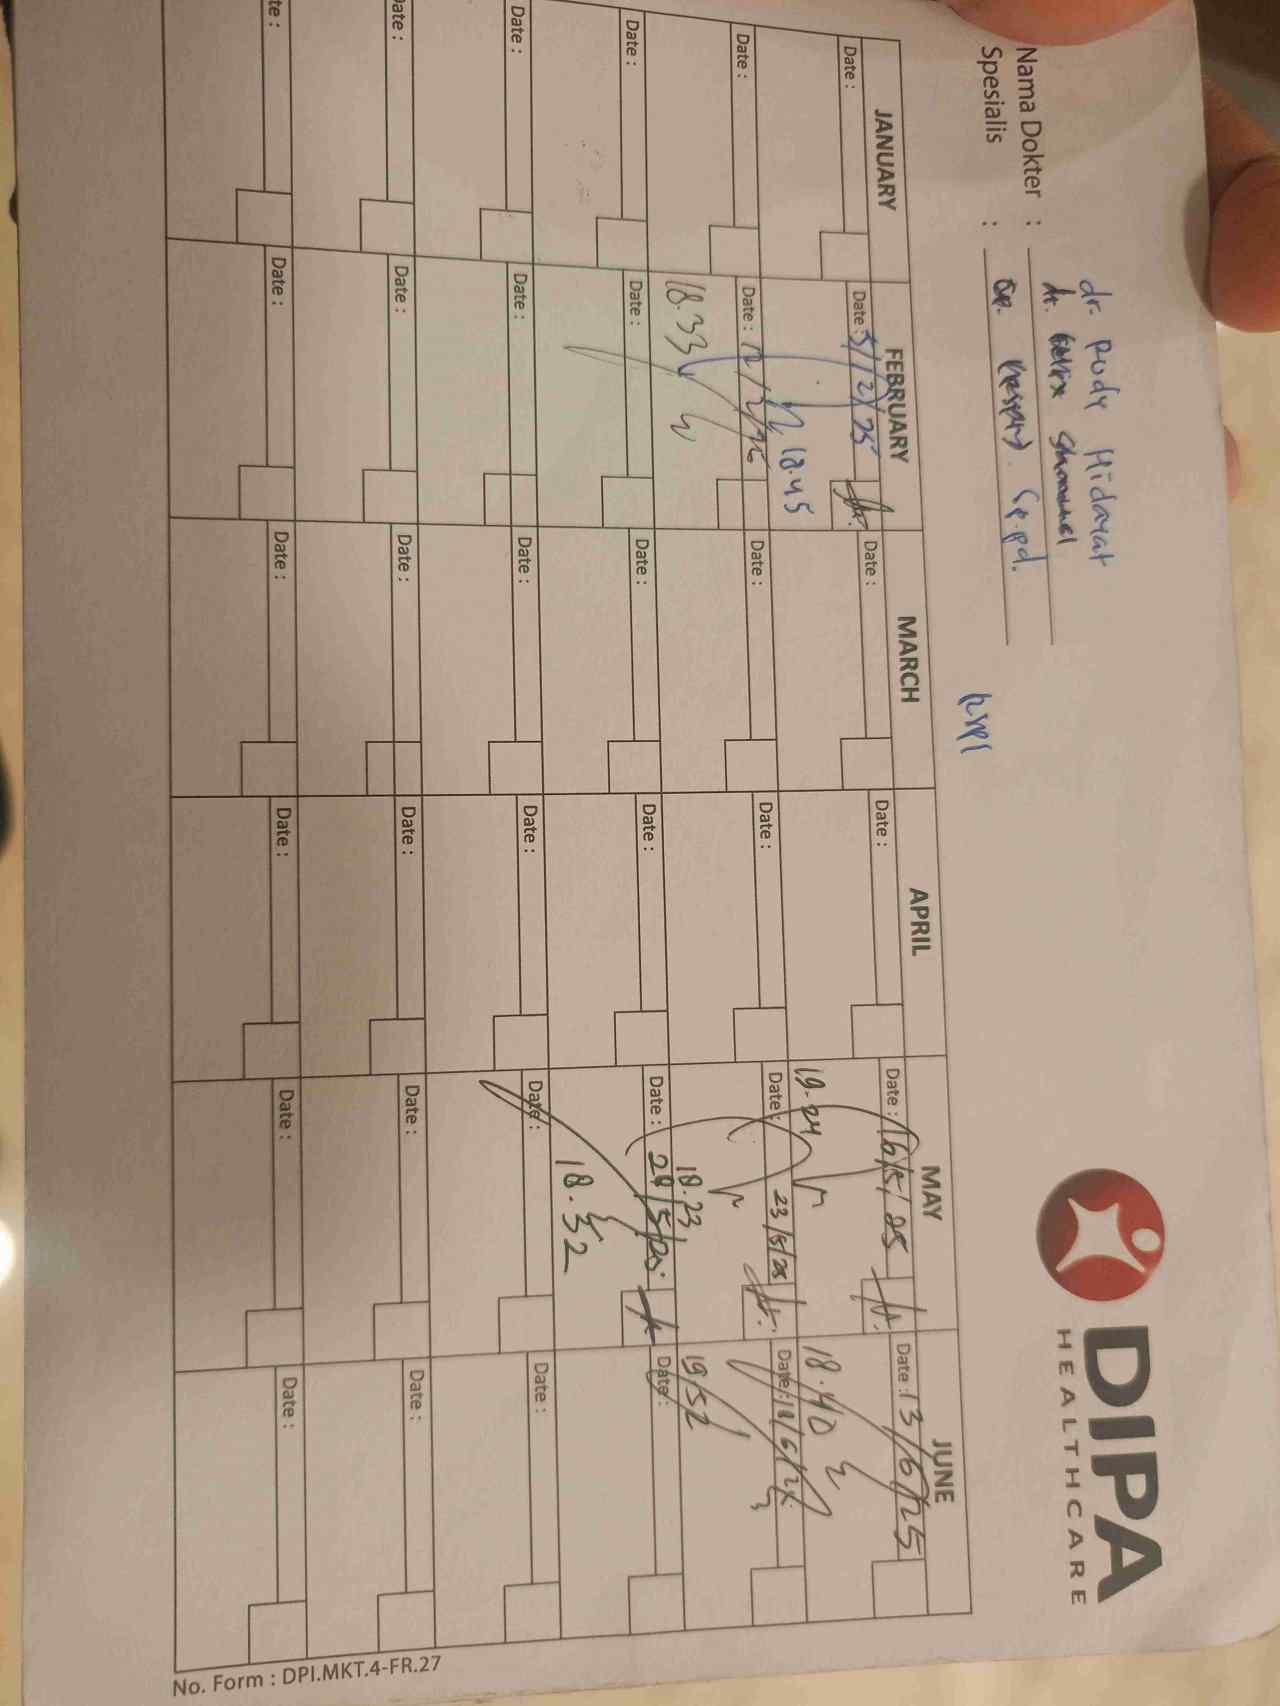 DIPA
HEALTHCARE
dr. Rudy Hidayat
Nama Dokter : dr.
Spesialis : Sp.pd.
JANUARY FEBRUARY MARCH APRIL MAY JUNE
Date : Date : 5/2/25 Date : Date : Date : 16/5/25 Date : 13/6/25
18.45 19.24 18.40
Date : Date : 12/2/25 Date : Date : Date : 23/5/25 Date : 18/6/25
18.33 18.23 19/52
Date : Date : Date : Date : Date : 28/5/25 Date :
18.32
Date : Date : Date : Date : Date : Date :
Date : Date : Date : Date : Date : Date :
Date : Date : Date : Date : Date : Date :
No. Form : DPI.MKT.4-FR.27